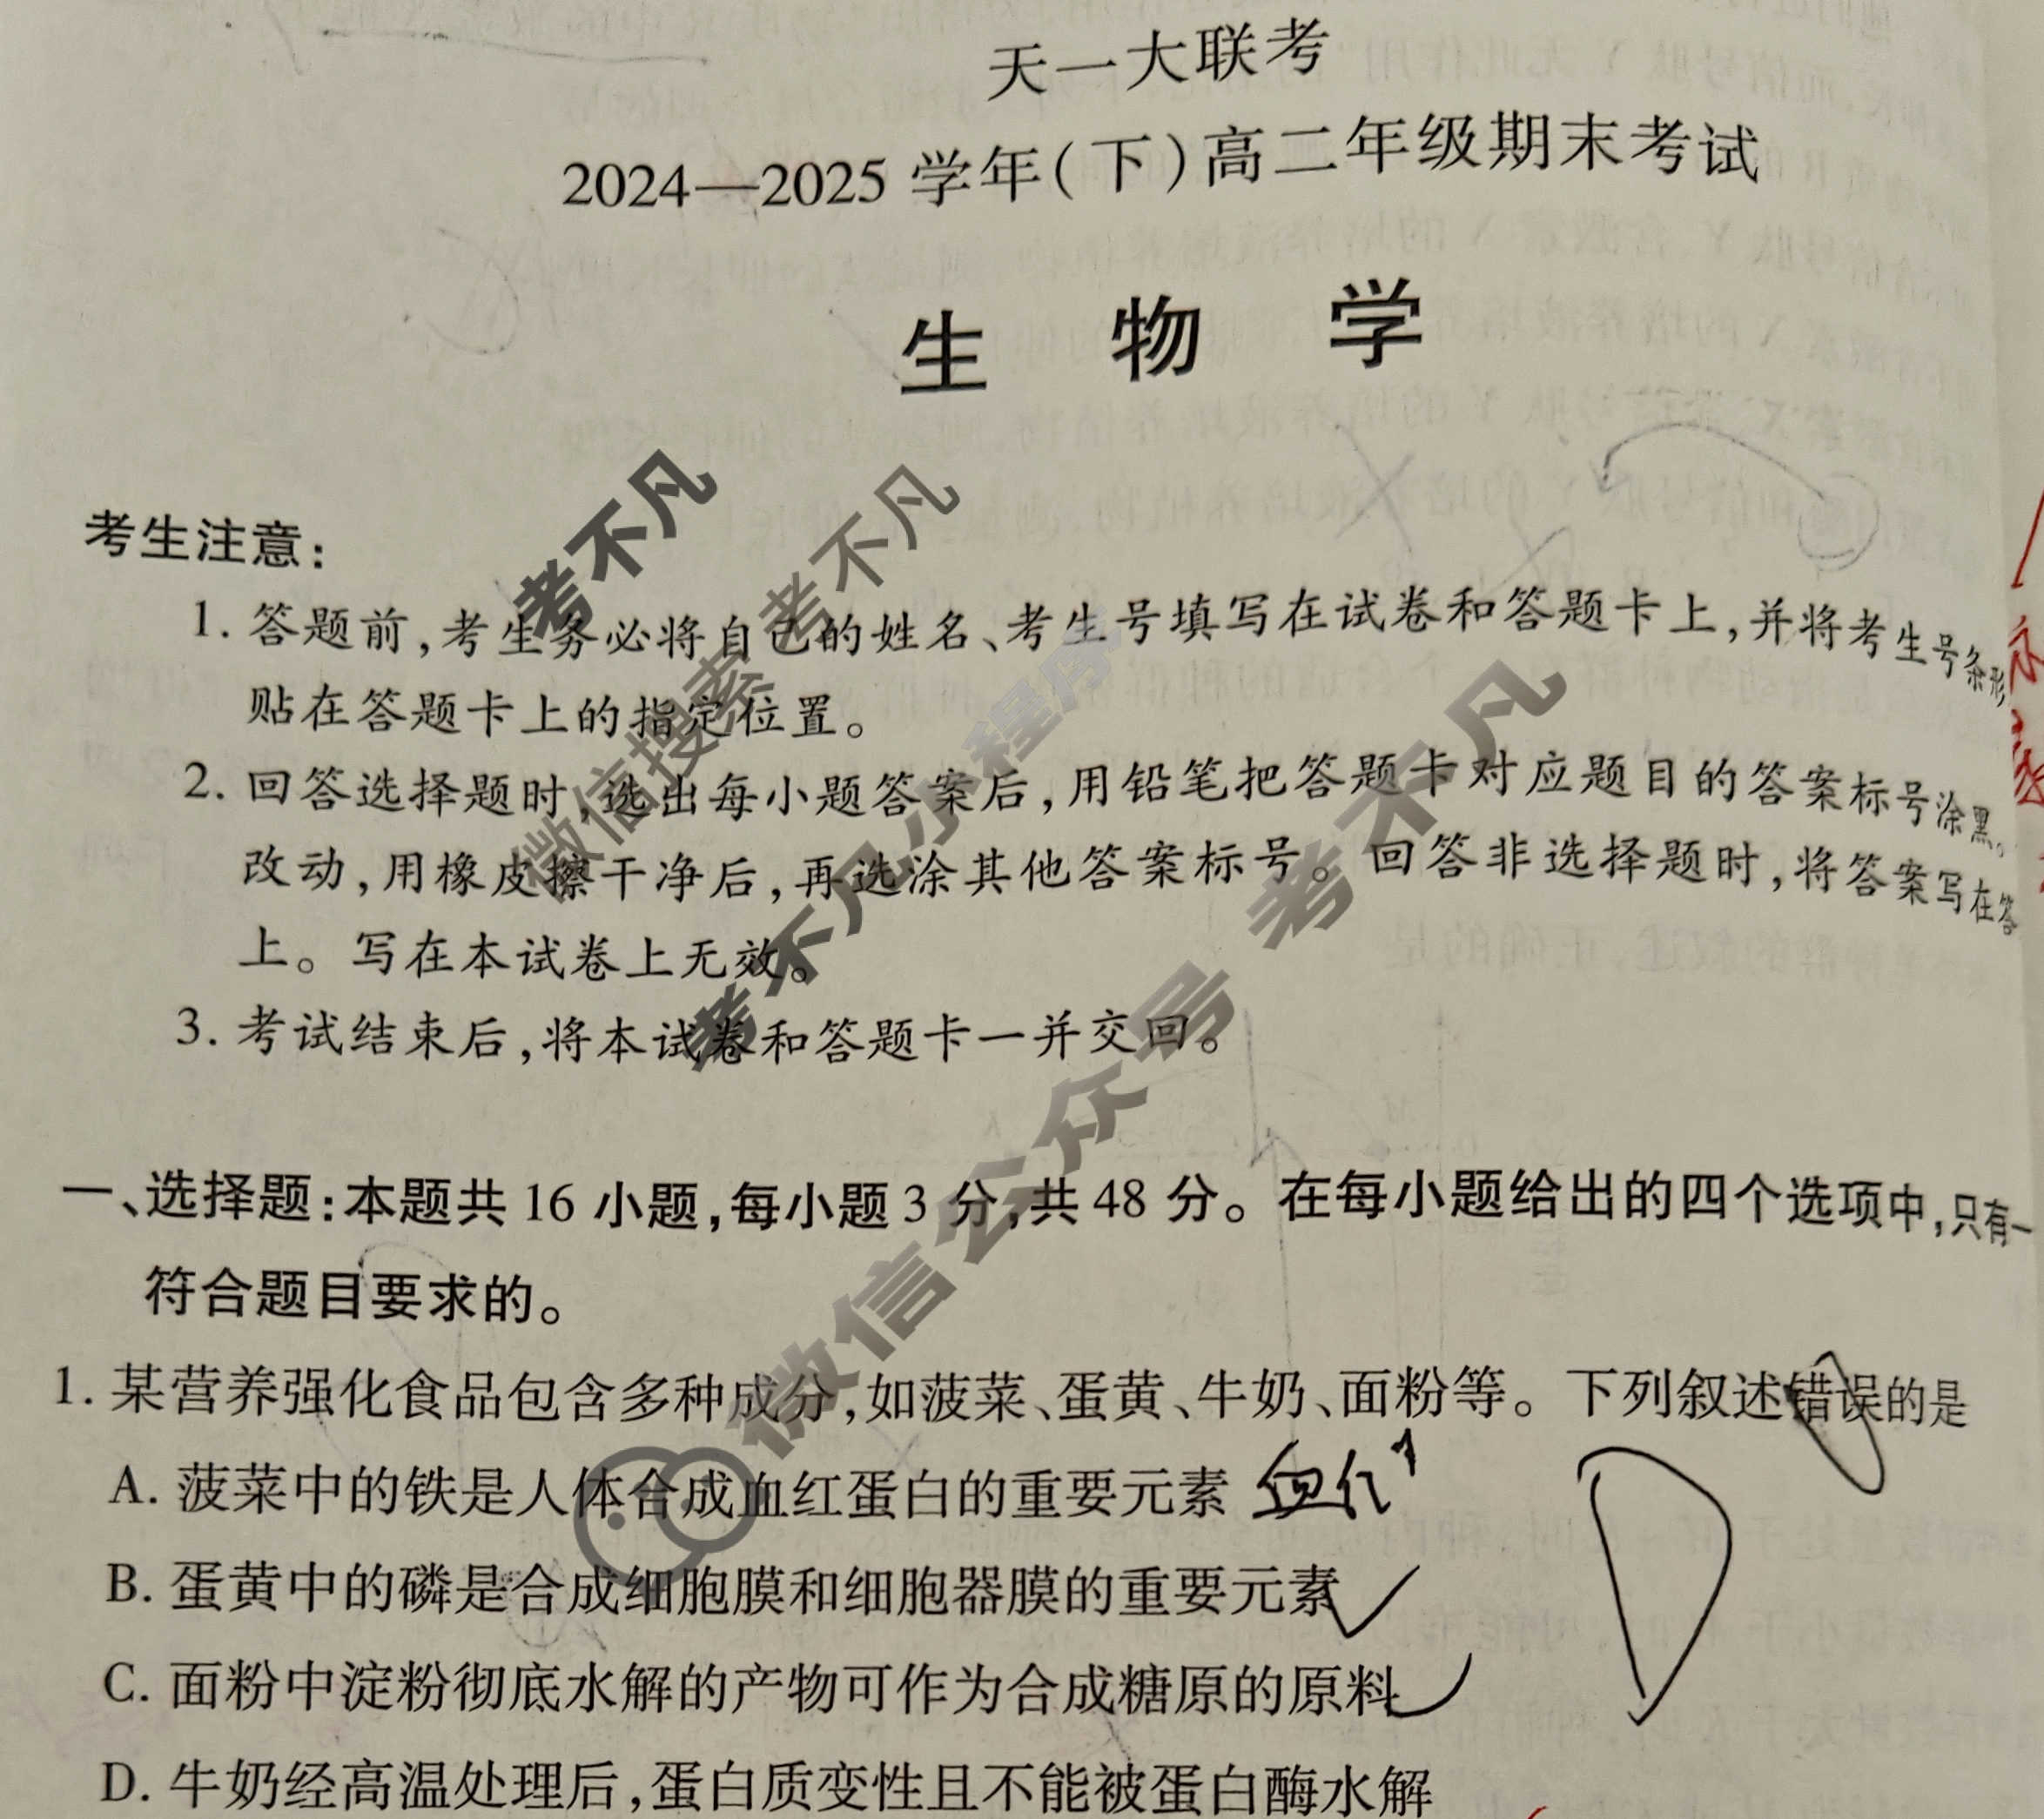 天一大联考
2024—2025 学年(下)高二年级期末考试
生 物 学
考生注意:
1. 答题前,考生务必将自己的姓名、考生号填写在试卷和答题卡上,并将考生号条形
贴在答题卡上的指定位置。
2. 回答选择题时,选出每小题答案后,用铅笔把答题卡对应题目的答案标号涂黑。
改动,用橡皮擦干净后,再选涂其他答案标号。回答非选择题时,将答案写在答
上。写在本试卷上无效。
3. 考试结束后,将本试卷和答题卡一并交回。
一、选择题:本题共 16 小题,每小题 3 分,共 48 分。在每小题给出的四个选项中,只有一
符合题目要求的。
1. 某营养强化食品包含多种成分,如菠菜、蛋黄、牛奶、面粉等。下列叙述错误的是
A. 菠菜中的铁是人体合成血红蛋白的重要元素
B. 蛋黄中的磷是合成细胞膜和细胞器膜的重要元素
C. 面粉中淀粉彻底水解的产物可作为合成糖原的原料
D. 牛奶经高温处理后,蛋白质变性且不能被蛋白酶水解
考不凡
微信搜索 考不凡
考不凡小程序
微信公众号 考不凡